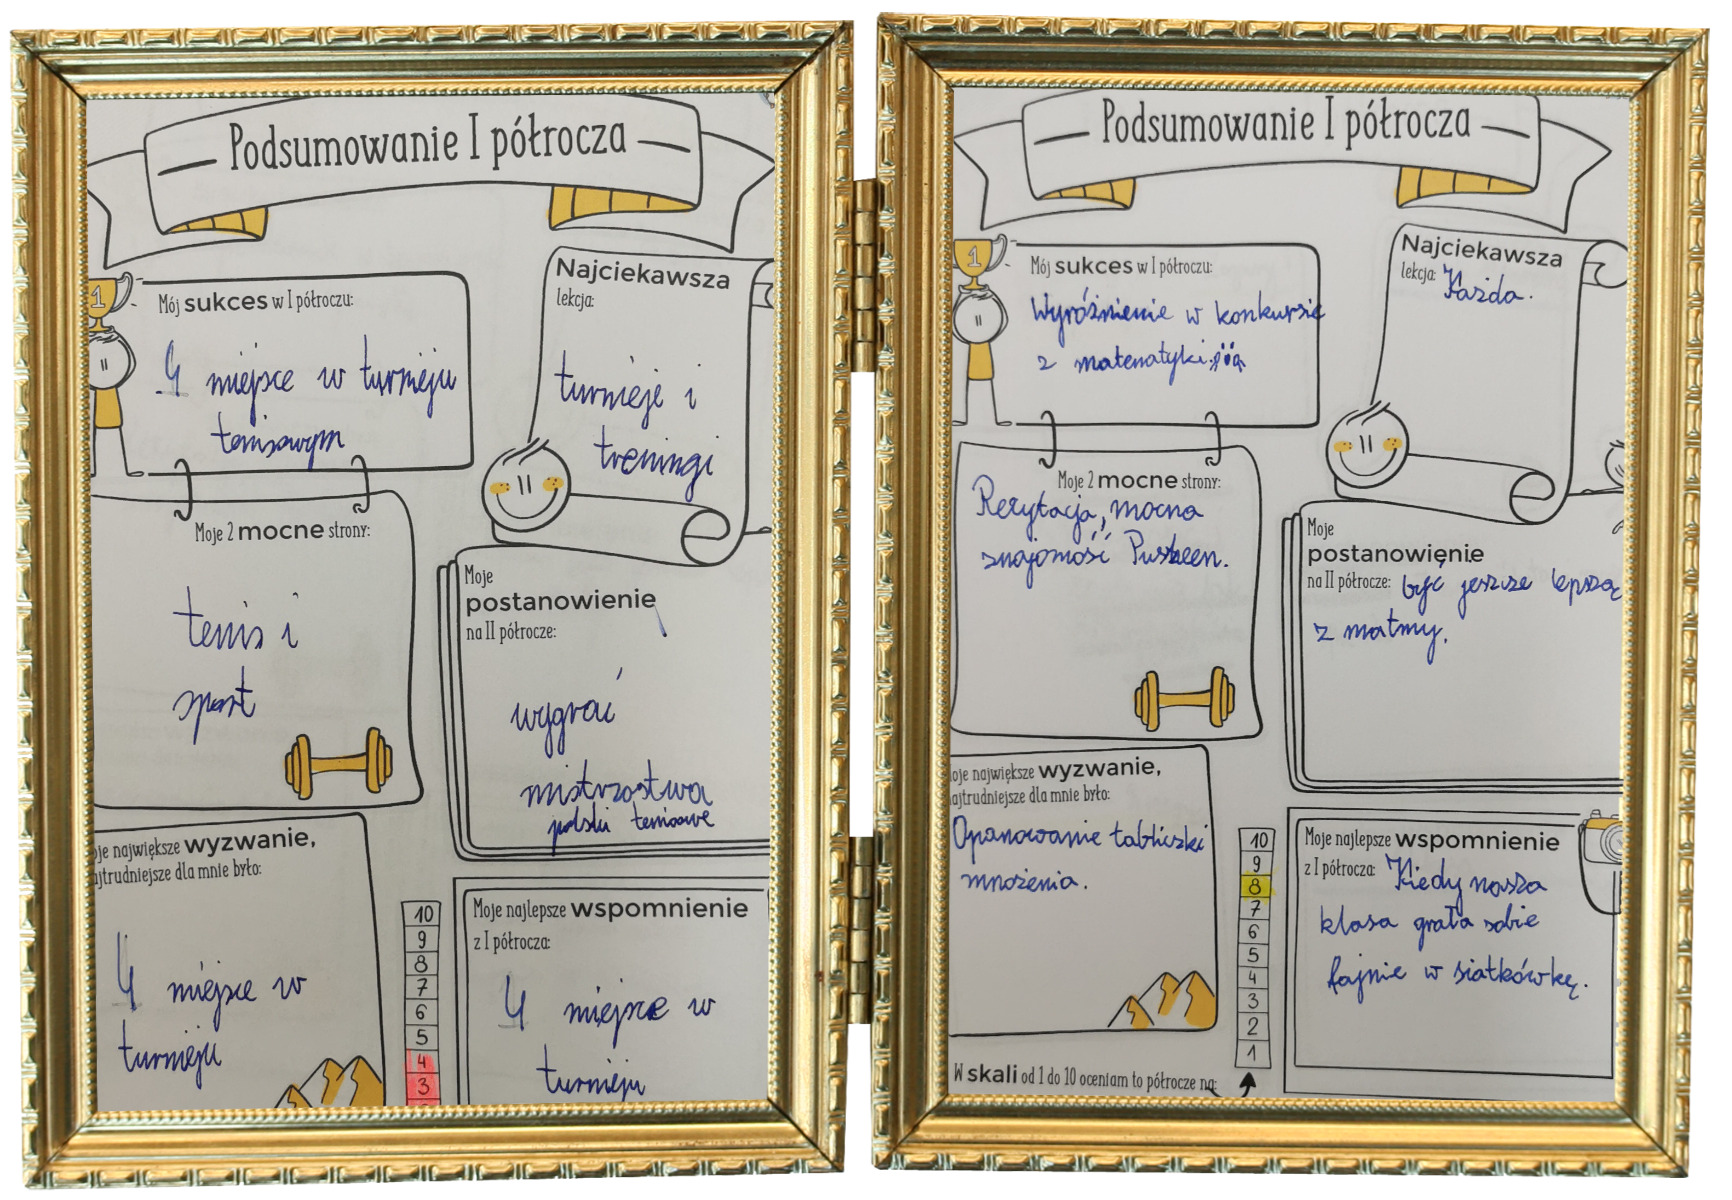 Podsumowanie I półrocza
Mój sukces w I półroczu:
4 miejsce w turnieju
tenisowym
Najciekawsza
lekcja:
turnieje i
treningi
Moje 2 mocne strony:
tenis i
sport
Moje
postanowienie
na II półrocze:
wygrać
mistrzostwa
polski tenisowe
oje największe wyzwanie,
ajtrudniejsze dla mnie było:
4 miejsce w
turnieju
10
9
8
7
6
5
4
3
Moje najlepsze wspomnienie
z I półrocza:
4 miejsce w
turnieju
Podsumowanie I półrocza
1
Mój sukces w I półroczu:
Wyróżnienie w konkursie
z matematyki
Najciekawsza
lekcja: Każda.
Moje 2 mocne strony:
Recytacja, mocna
znajomość Pusheen.
Moje
postanowienie
na II półrocze: być jeszcze lepszą
z matmy.
oje największe wyzwanie,
ajtrudniejsze dla mnie było:
Opanowanie tabliczki
mnożenia.
10
9
8
7
6
5
4
3
2
1
W skali od 1 do 10 oceniam to półrocze na:
Moje najlepsze wspomnienie
z I półrocza: Kiedy nasza
klasa grała sobie
fajnie w siatkówkę.